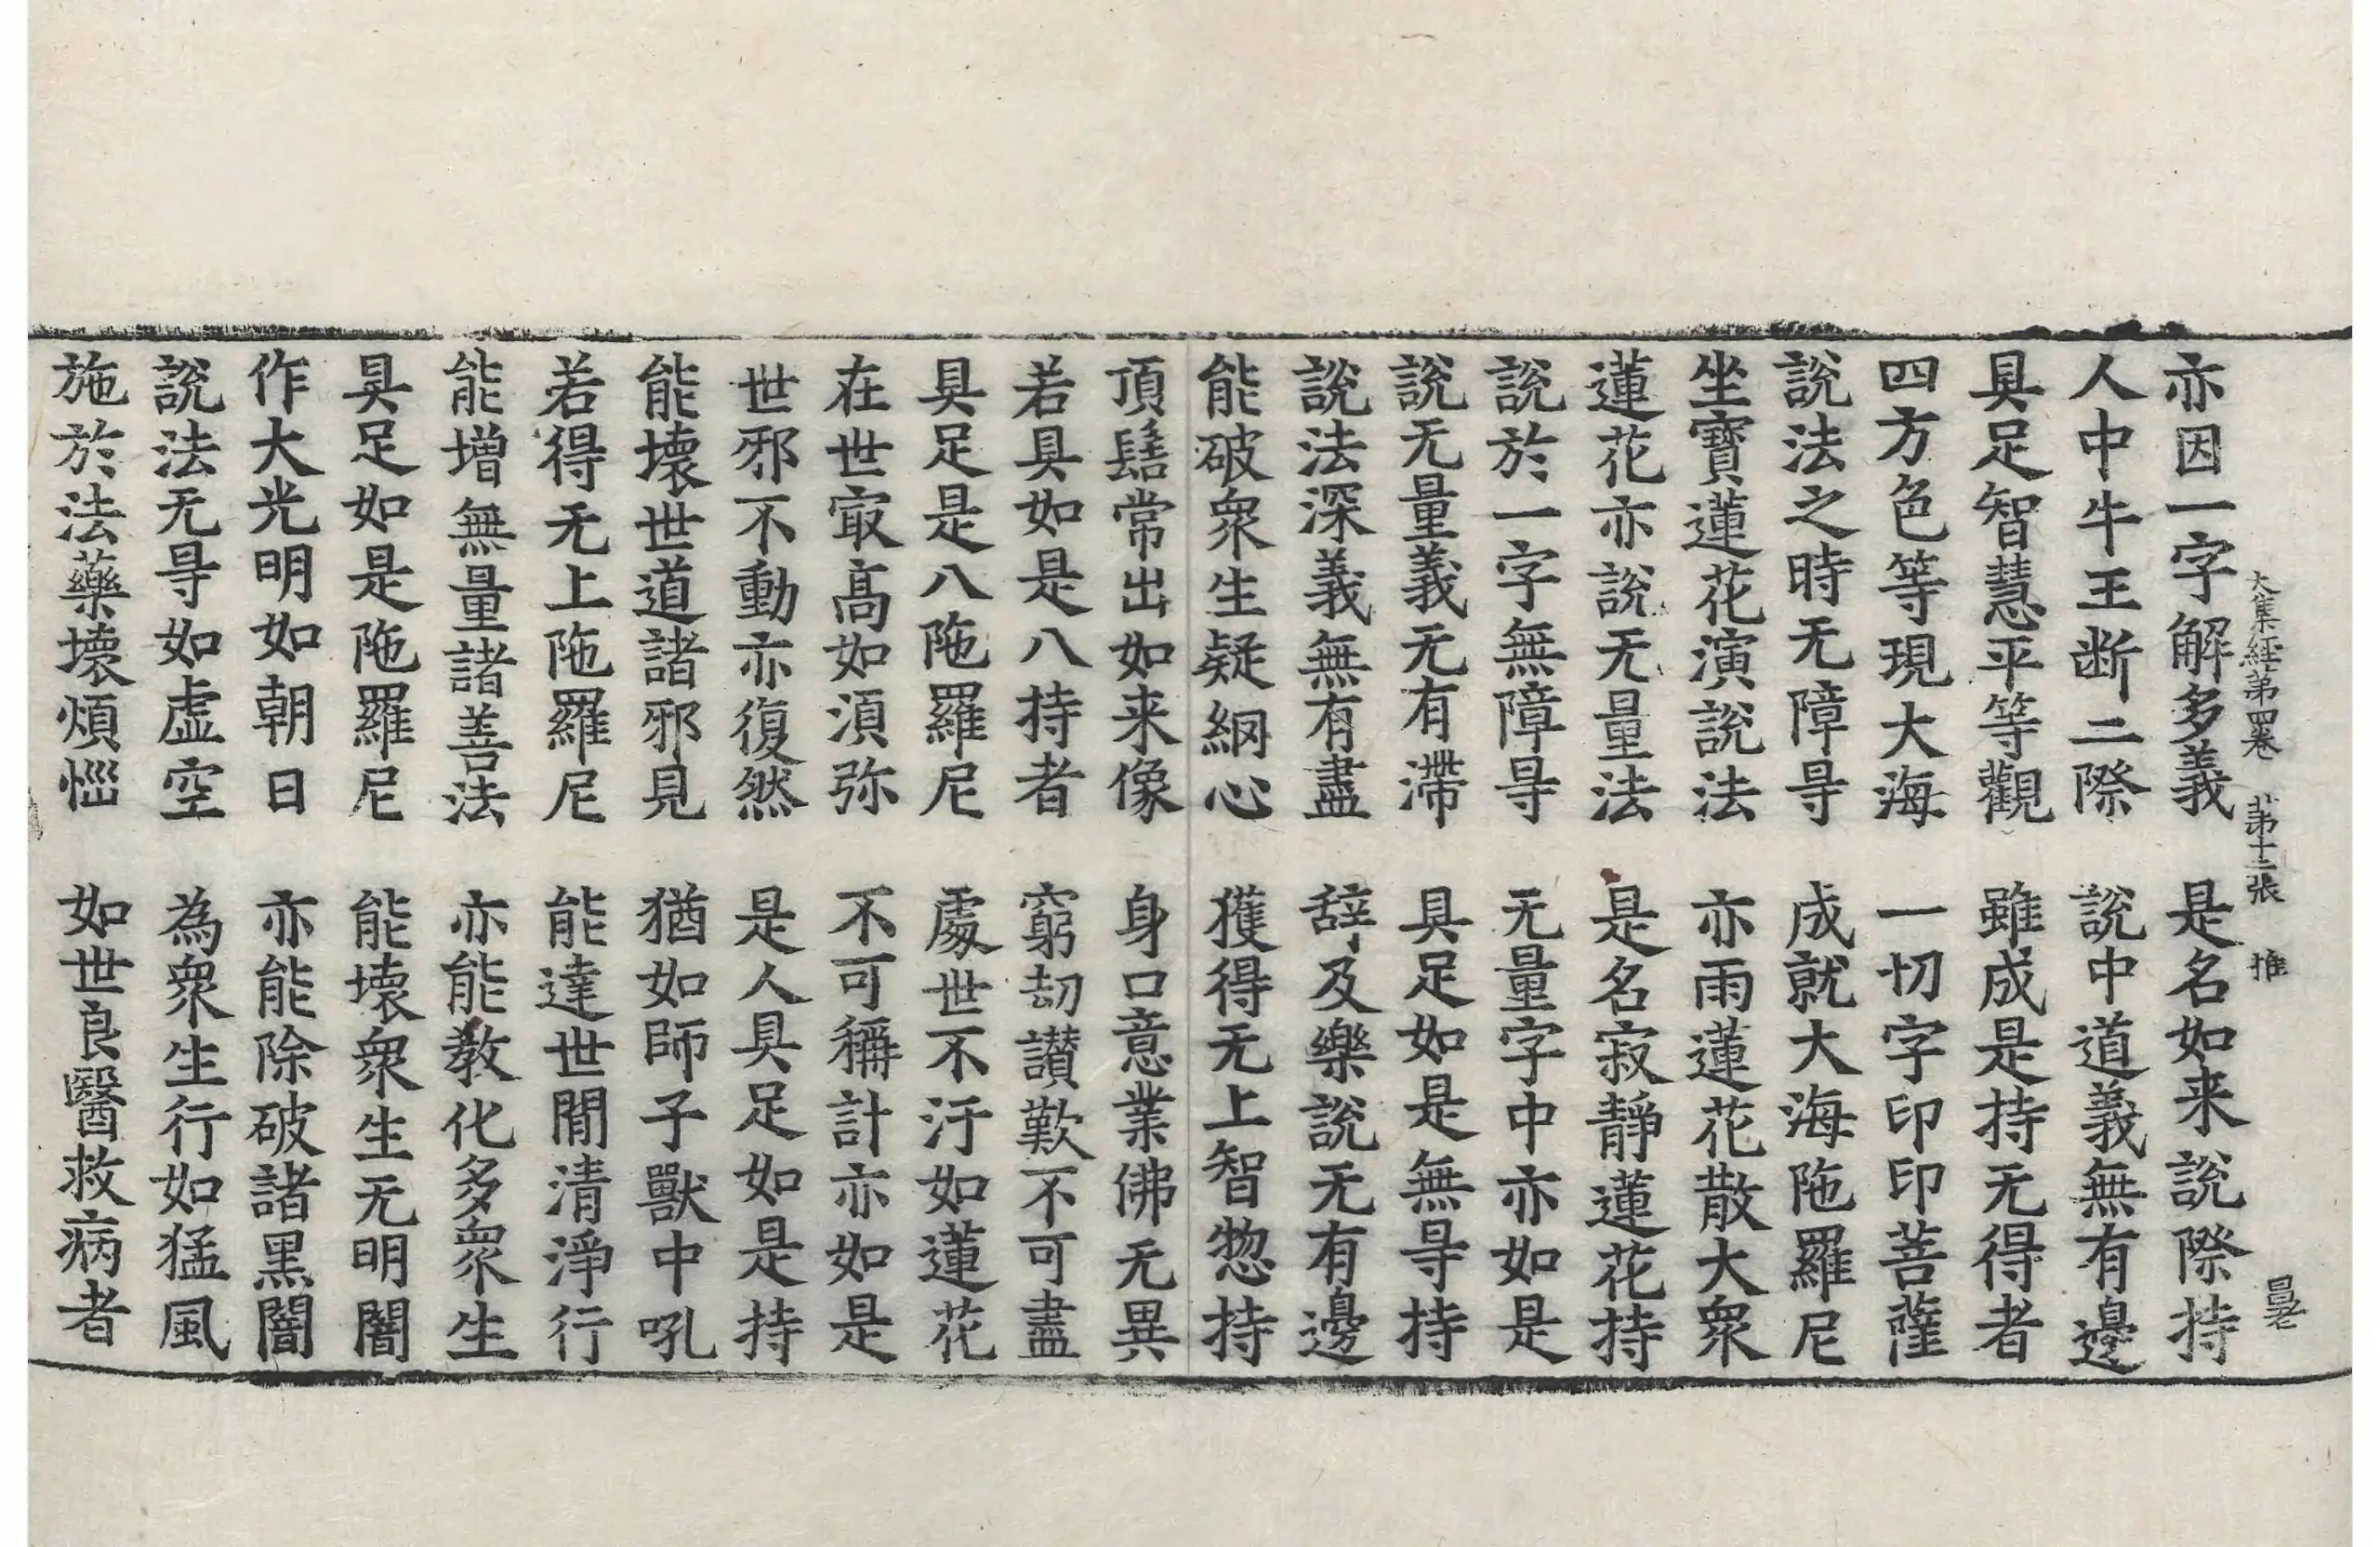 大集経第四卷 第十二張 推
亦因一字解多義 是名如来說際持
人中牛王断二際 說中道義無有邊
具足智慧平等觀 雖成是持无得者
四方色等現大海 一切字印印菩薩
說法之時无障㝵 成就大海陁羅尼
坐寶蓮花演說法 亦雨蓮花散大衆
蓮花亦說无量法 是名寂靜蓮花持
說於一字無障㝵 无量字中亦如是
說无量義无有滯 具足如是無㝵持
說法深義無有盡 辞及樂說无有邊
能破衆生疑網心 獲得无上智惣持
頂髻常出如来像 身口意業佛无異
若具如是八持者 窮劫讃歎不可盡
具足是八陁羅尼 處世不汙如蓮花
在世㝡髙如湏弥 不可稱計亦如是
世邪不動亦復然 是人具足如是持
能壞世道諸邪見 猶如師子獸中吼
若得无上陁羅尼 能達世閒清淨行
能增無量諸善法 亦能教化多衆生
具足如是陁羅尼 能壞衆生无明闇
作大光明如朝日 亦能除破諸黒闇
說法无㝵如虛空 為衆生行如猛風
施於法藥壞煩惱 如世良醫救病者